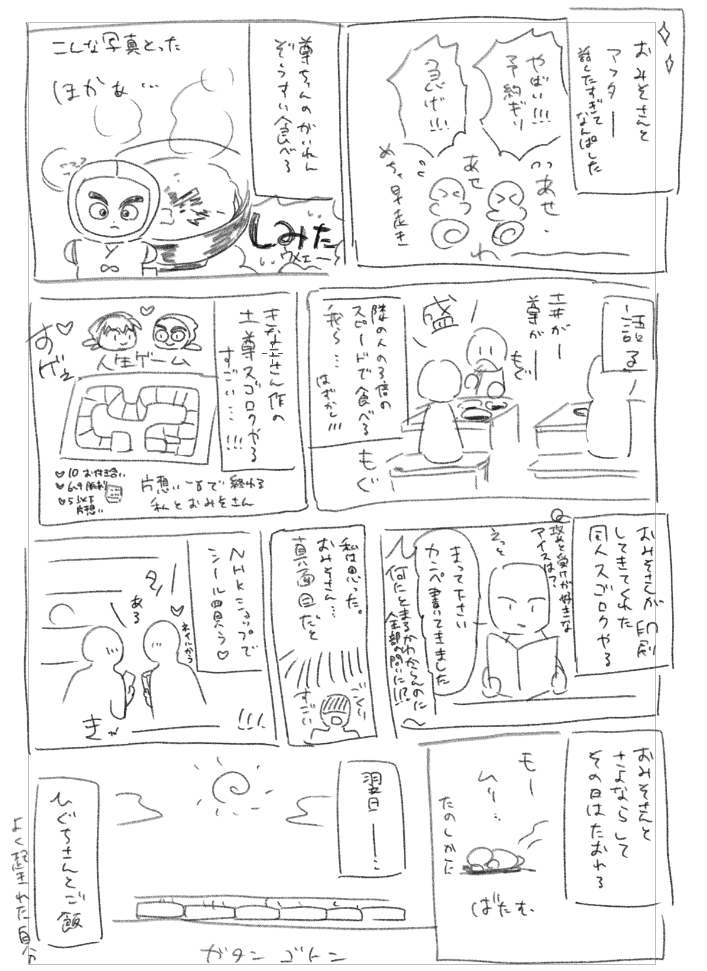 おみそさんと
アフター
話したすぎて
なんぱした
やばい!!!
予約ギリ
急げ!!!
あせ
あせ
めちゃ早起き
尊ちゃんのかいわん
ぞうすい食べる
こんな写真とった
ほかぁ…
しみた
ウメェー
語る
土井がー
尊がー
もぐ
盛
隣の人の3倍の
スピードで食べる
我ら…
はずかし!!!
もぐ
きなこさん作の
土尊スゴロクやる
すごい…!!!
人生ゲーム
すげぇ
♡10 お付き合い
♡5以下
片想い
片想い
で終わる
私とおみそさん
おみそさんが印刷
してきてくれた
同人スゴロクやる
Q
攻と受けが好きな
アイスは?
えっと
まって下さい
カンペ書いてきました
何にとまるかわからんのに
全部の問いに!?!
私は思った。
おみそさん…
真面目だと
ごくり
すごい
NHKショップで
シール買う♡
ある
!!!
おみそさんと
さよならして
その日はたおれる
もー
ムリ…
たのしかた
ばたむ
翌日ー…
ガタン ゴトン
ひぐちさんとご飯
よく起きれた自分